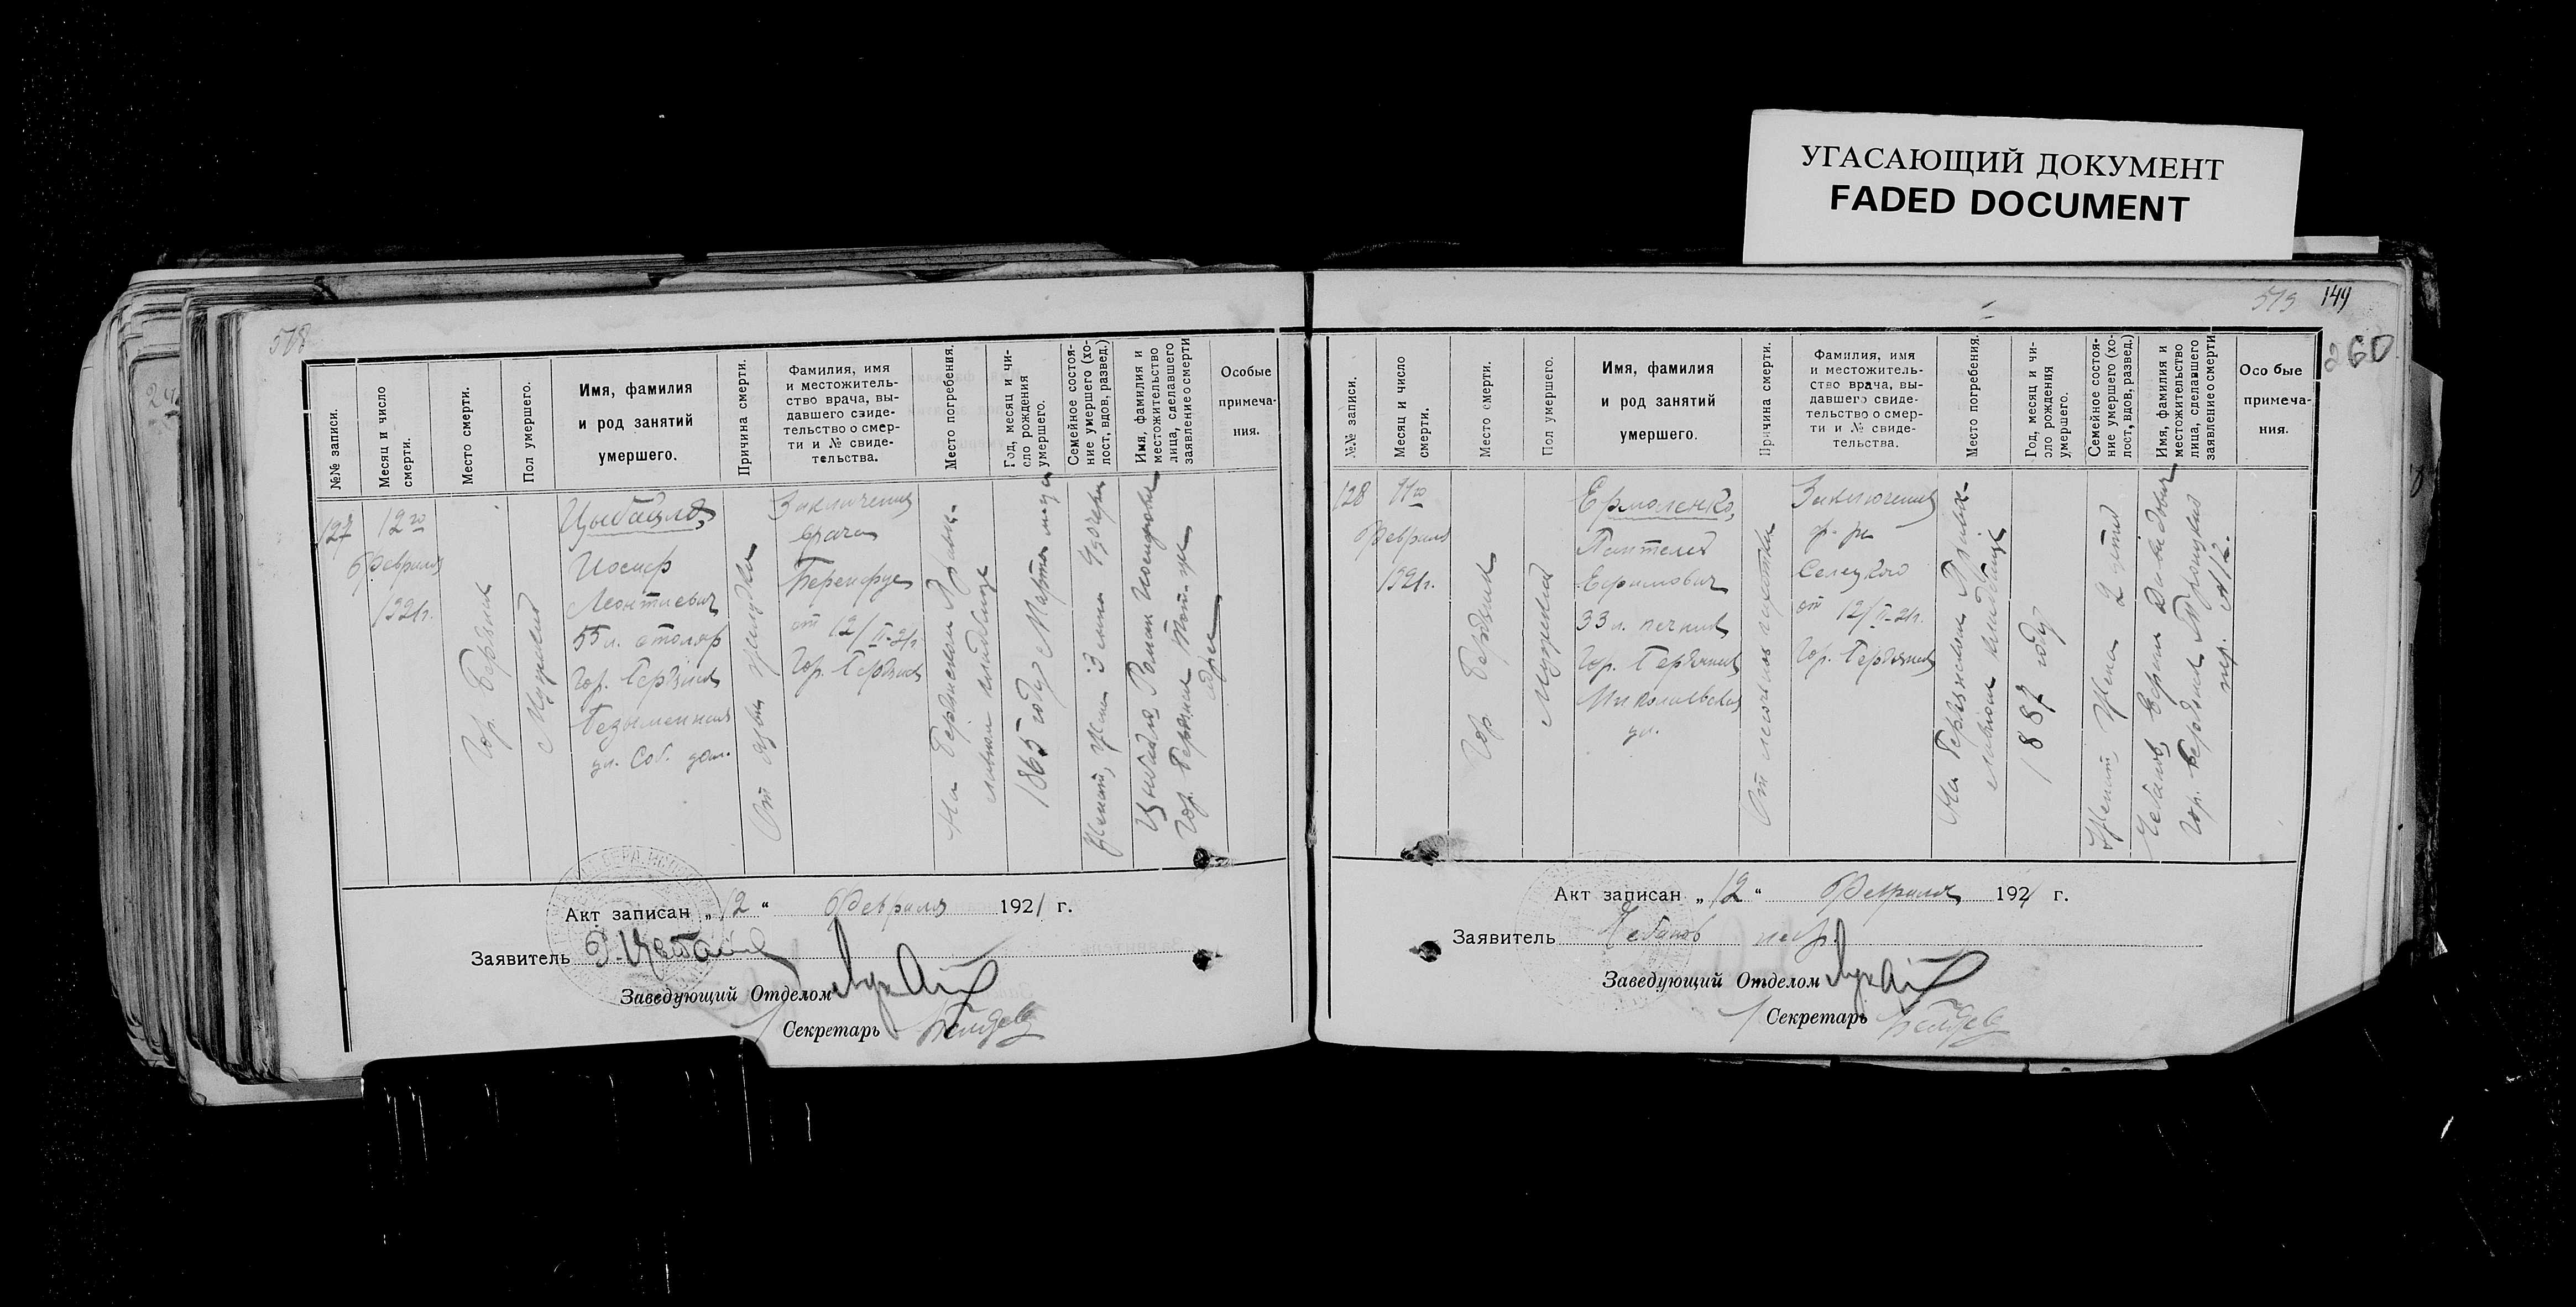 УГАСАЮЩИЙ ДОКУМЕНТ
FADED DOCUMENT
578
№№ записи.
Месяц и число
смерти.
Место смерти.
Пол умершего.
Имя, фамилия
и род занятий
умершего.
Причина смерти.
Фамилия, имя
и местожитель-
ство врача, вы-
давшего свиде-
тельство о смер-
ти и № свиде-
тельства.
Место погребения.
Год, месяц и чи-
сло рождения
умершего.
Семейное состоя-
ние умершего (хо-
лост, вдов, развед.)
Имя, фамилия и
местожительство
лица, сделавшего
заявление о смерти
Особые
примеча-
ния.
127
12го
Февраля
1921г.
Гор. Бердянск
Мужской
Цыбайло,
Иосиф
Леонтиевич
55 л. столяр
Гор. Бердянск
Безыменная
ул. Соб. дом.
От язвы желудка
Заключения
врача
от 12/II-21г.
Гор. Бердянск
На Бердянском Правос-
лавном кладбище
1865 году Марта месяца
Женат, жена 3 сына 4 дочери
Цыбайло Роман Иосифович
Гор. Бердянск
Акт записан „12“ Февраля 1921 г.
Заявитель Р. Цыбайло
Заведующий Отделом
Секретарь
519
144
260
№№ записи.
Месяц и число
смерти.
Место смерти.
Пол умершего.
Имя, фамилия
и род занятий
умершего.
Причина смерти.
Фамилия, имя
и местожитель-
ство врача, вы-
давшего свиде-
тельство о смер-
ти и № свиде-
тельства.
Место погребения.
Год, месяц и чи-
сло рождения
умершего.
Семейное состоя-
ние умершего (хо-
лост, вдов, развед.)
Имя, фамилия и
местожительство
лица, сделавшего
заявление о смерти
Особые
примеча-
ния.
128
11го
Февраля
1921г.
Гор. Бердянск
Мужской
Ермоленко,
Пантелей
Ефимович
33 л. печник
Гор. Бердянск
Никольская
ул.
От легочной чахотки
Заключения
д-ра
Селецкого
от 12/II-21г.
Гор. Бердянск
На Бердянском Правос-
лавном кладбище
1887 году
Женат, жена 2 детей
Чебанов, Ефим Давидович
Гор. Бердянск Троицкая
№ 12.
Акт записан „12“ Февраля 1921 г.
Заявитель Чебанов негр.
Заведующий Отделом
Секретарь